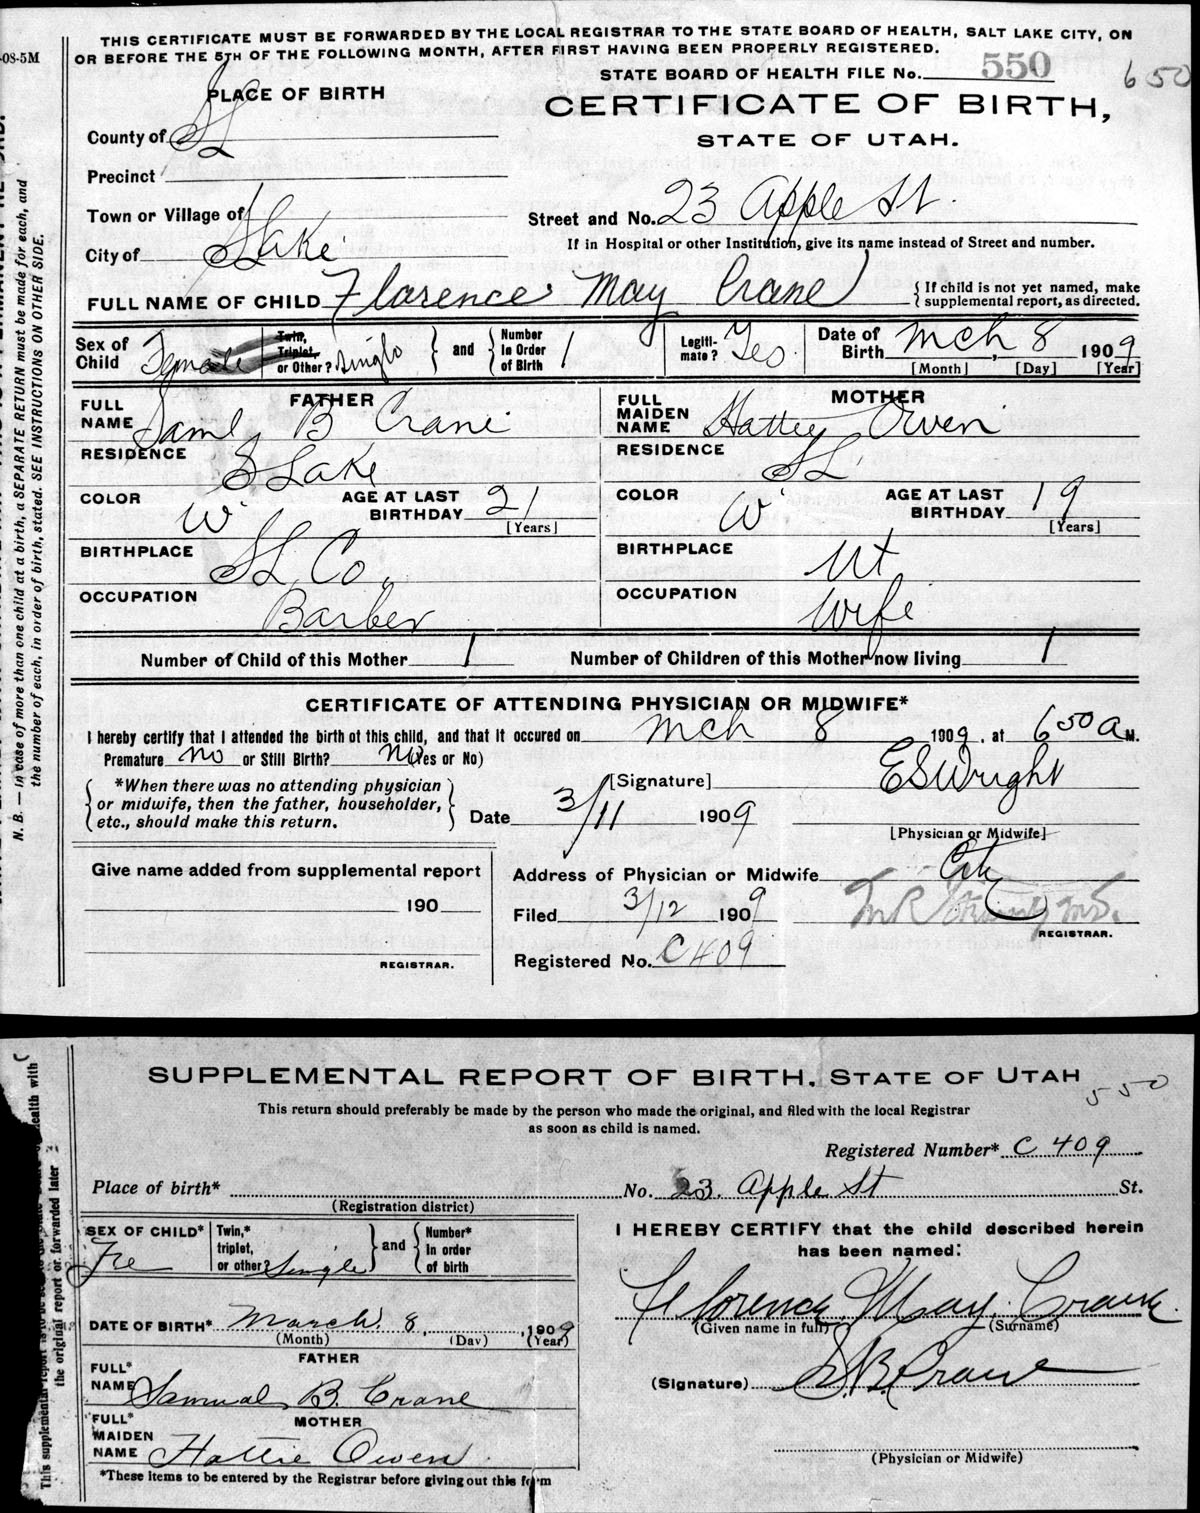 THIS CERTIFICATE MUST BE FORWARDED BY THE LOCAL REGISTRAR TO THE STATE BOARD OF HEALTH, SALT LAKE CITY, ON
OR BEFORE THE 5TH OF THE FOLLOWING MONTH, AFTER FIRST HAVING BEEN PROPERLY REGISTERED.
-08-5M
STATE BOARD OF HEALTH FILE No. 550
650
PLACE OF BIRTH
CERTIFICATE OF BIRTH,
STATE OF UTAH.
County of SL
Precinct
Town or Village of
City of S Lake
Street and No. 23 Apple St.
If in Hospital or other Institution, give its name instead of Street and number.
FULL NAME OF CHILD Florence May Crane
{ If child is not yet named, make
supplemental report, as directed.
Sex of Child Female
Twin, Triplet, or Other? Single
and
Number in Order of Birth 1
Legiti-mate? Yes
Date of Birth Mch 8, 1909
[Month] [Day] [Year]
FATHER
FULL NAME Saml B Crane
RESIDENCE S Lake
COLOR W
AGE AT LAST BIRTHDAY 21
[Years]
BIRTHPLACE SL Co.
OCCUPATION Barber
MOTHER
FULL MAIDEN NAME Hattie Owen
RESIDENCE SL
COLOR W
AGE AT LAST BIRTHDAY 19
[Years]
BIRTHPLACE Ut
OCCUPATION Wife
Number of Child of this Mother 1
Number of Children of this Mother now living 1
CERTIFICATE OF ATTENDING PHYSICIAN OR MIDWIFE*
I hereby certify that I attended the birth of this child, and that it occured on Mch 8 1909, at 650 a M.
Premature No or Still Birth? No (Yes or No)
*When there was no attending physician
or midwife, then the father, householder,
etc., should make this return.
[Signature] ES Wright
Date 3/11 1909
[Physician or Midwife]
Give name added from supplemental report
190
REGISTRAR.
Address of Physician or Midwife City
Filed 3/12 1909
REGISTRAR.
Registered No. C409
N. B. — In case of more than one child at a birth, a SEPARATE RETURN must be made for each, and
the number of each, in order of birth, stated. SEE INSTRUCTIONS ON OTHER SIDE.
SUPPLEMENTAL REPORT OF BIRTH. STATE OF UTAH
550
This return should preferably be made by the person who made the original, and filed with the local Registrar
as soon as child is named.
Registered Number* C 409
Place of birth* No. 23. Apple St St.
(Registration district)
SEX OF CHILD*
Twin,* triplet, or other Single
and
Number* in order of birth
I HEREBY CERTIFY that the child described herein
has been named:
Florence May Crane
(Given name in full) (Surname)
DATE OF BIRTH* March 8, 1909
(Month) (Day) (Year)
FATHER
FULL* NAME Samual B. Crane
(Signature) S.B. Crane
MOTHER
FULL* MAIDEN NAME Hattie Owen
(Physician or Midwife)
*These items to be entered by the Registrar before giving out this form
the original report or forwarded later